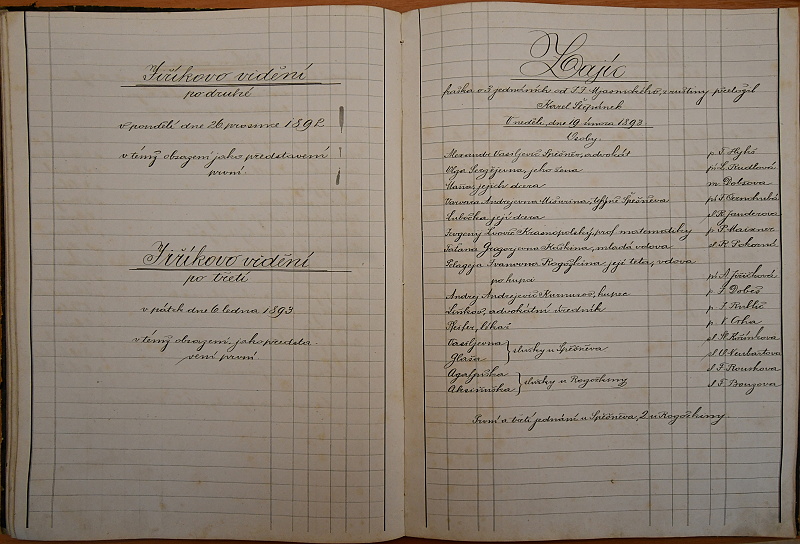 Jiříkovo vidění
po druhé
v pondělí dne 26 prosince 1892
v témž obsazení jako představení
první.
Jiříkovo vidění
po třetí
v pátek dne 6 ledna 1893
v témž obsazení jako předsta-
vení první
Zajíc
fraška o 3 jednáních od I. I. Mjasnického, z ruštiny přeložil
Karel Štěpánek
V neděli, dne 19 února 1893.
Osoby:
Alexandr Vasiljevič Spěšněv, advokát p. F. Hykš
Olga Sergějevna, jeho žena pí L. Kudlová
Hana, jejich dcera m. Dobsova
Varvara Andrejevna Spěšněva
Lubočka její dcera sl. R. Janderova
Evgeny Lvovič Krasnopolský, prof. matematiky p. P. Maixner
Taťana Grigorjevna Koškina, mladá vdova sl. R. Pokorná
Pelageja Ivanovna Rogožkina její teta, vdova
po kupci pí A. Jiříčková
Andrej Andrejevič kupec p. J. Dobeš
Linkov, advokátní úředník p. J. Kublic
Pfefer, lékař p. V. Crha
Vasiljevna
Glaša služky u Spěšněva sl. O. Neubartova
Agafjuška sl. F. Rouskova
Aksiňuška služky u Rogožkiny sl. F. Benzova
První a třetí jednání u Spěšněva, 2 u Rogožkiny.